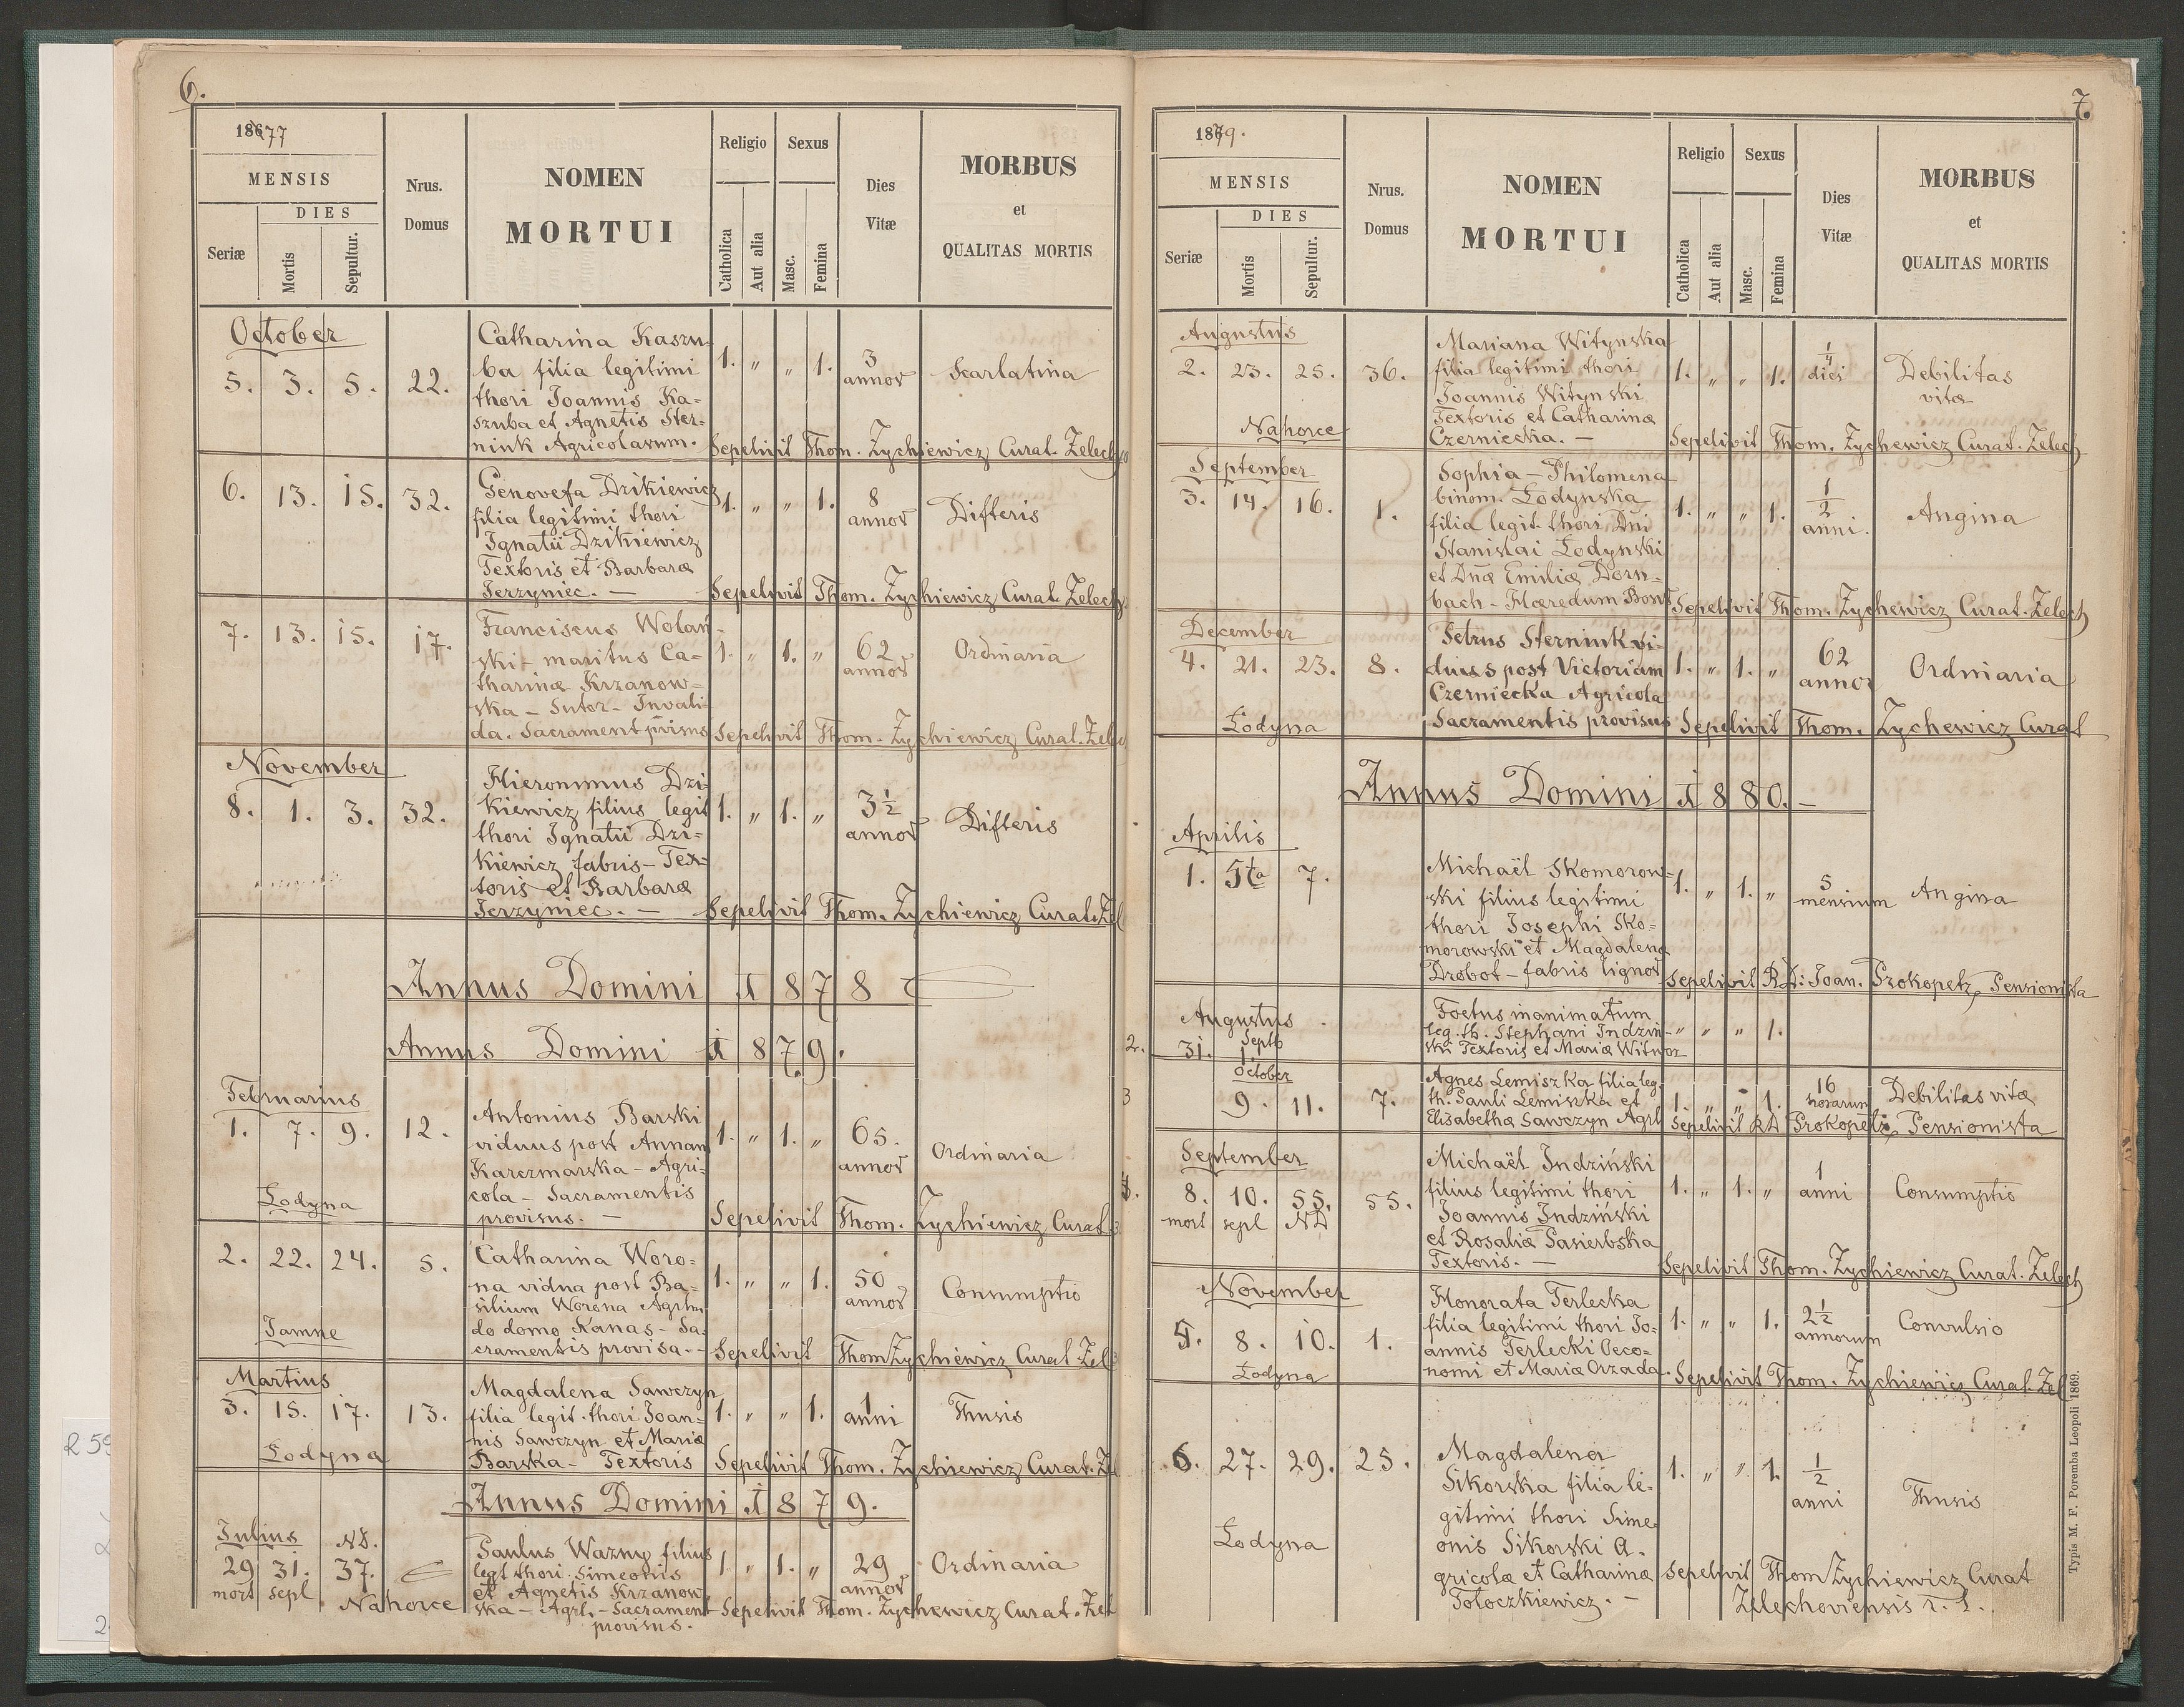 6.
1877
MENSIS
DIES
Seriæ
Mortis
Sepultur.
Nrus.
Domus
NOMEN
MORTUI
Religio
Sexus
Catholica
Aut alia
Masc.
Femina
Dies
Vitæ
MORBUS
et
QUALITAS MORTIS
October
5. 3. 5. 22.
Catharina Kaszu-
ba filia legitimi
thori Joannis Ka-
szuba et Agnetis Ster-
nink Agricolarum.
1. " " 1. 3 annor Scarlatina
Sepelivit Thom. Zychiewicz Curat. Zelech
6. 13. 15. 32.
Genovefa Dzikiewicz
filia legitimi thori
Ignatii Dzikiewicz
Textoris et Barbaræ
Jerzyniec. —
1. " " 1. 8 annor Difteris
Sepelivit Thom. Zychiewicz Curat. Zelech.
7. 13. 15. 17.
Franciscus Wolań-
ski - maritus Ca-
tharinæ Krzanow-
ska - Sutor - Invali-
da. Sacrament provisus
1. " 1. " 62 annor Ordinaria
Sepelivit Thom. Zychiewicz Curat. Zele
November
8. 1. 3. 32.
Hieronimus Dzi-
kiewicz filius legit
thori Ignatii Dzi-
kiewicz fabris - Tex-
toris et Barbaræ
Jerzyniec. —
1. " 1. " 3½ annor Difteris
Sepelivit Thom. Zychiewicz Curat. Zel
Annus Domini 1878
Annus Domini 1879.
Februarius
1. 7. 9. 12.
Łodyna
Antonius Barski
viduus post Annam
Karczmarska - Agri-
cola - Sacramentis
provisus. —
1. " 1. " 65. annor Ordinaria
Sepelivit Thom. Zychiewicz Curat.
2. 22. 24. 5.
Jamne
Catharina Woro-
na vidua post Ba-
silium Worona Agrlm
do domo Kanas - Sa-
cramentis provisa. -
1. " " 1. 50 annor Consumptio
Sepelivit Thom Zychiewicz Curat. Zel
Martius
3. 15. 17. 13.
Łodyna
Magdalena Sawczyn
filia legit. thori Joan-
nis Sawczyn et Mariæ
Barska - Textoris
1. " " 1. 1 anni Thusis
Sepelivit Thom. Zychiewicz Curat. Ze
Annus Domini 1879.
Julius ND.
29 31. 37.
mort sepl
Nahorce
Paulus Wazny filius
legt thori Simeonis
et Agnetis Krzanow
ska - Agrl. - Sacrament
provisus.
1. " 1. " 29 annor Ordinaria
Sepelivit Thom. Zychewicz Curat. Zel
7.
1879.
MENSIS
DIES
Seriæ
Mortis
Sepultur.
Nrus.
Domus
NOMEN
MORTUI
Religio
Sexus
Catholica
Aut alia
Masc.
Femina
Dies
Vitæ
MORBUS
et
QUALITAS MORTIS
Augustus
2. 23. 25. 36.
Nahorce
Mariana Witynska
filia legitimi thori
Joannis Witynski
Textoris et Catharinæ
Czerniecka. —
1. " " 1. ¼ diei Debilitas
vitæ
Sepelivit Thom. Zychewicz Curat. Zelech
September
3. 14. 16. 1.
Sophia - Philomena
binom. Łodynska
filia legit. thori Dni
Stanislai Łodynski
et Dnæ Emiliæ Dorn-
bach - Hæredum Bon
1. " " 1. ½ anni. Angina
Sepelivit Thom. Zychewicz Curat. Zelech
December
4. 21. 23. 8.
Łodyna
Petrus Sternink vi-
duus post Victoriam
Czerniecka Agricola
Sacramentis provisus
1. " 1. " 62 annor Ordinaria
Sepelivit Thom. Zychewicz Curat
Annus Domini 1880. —
Aprilis
1. 5ta 7.
Michaël Skomorow-
ski filius legitimi
thori Josephi Sko-
morowski et Magdalena
Drobot - fabris lignor
1. " 1. " 5 mensium Angina
Sepelivit RD: Joan. Prokopetz, Pensionista
Augustus
2. 31. Septb 1.
Foetus inanimatum
leg. th. Stephani Indzin-
ski Textoris et Mariæ Witwor
" " " 1.
October
3 9. 11. 7.
Agnes Lemiszka filia leg.
th. Pauli Lemiszka et
Elisabethæ Sawczyn Agrl
1. " " 1. 16 horarum Debilitas vitæ
Sepelivit RD Prokopetz Pensionista
September
4. 8. 10. 55. 55.
mort sepl ND
Michaël Indziński
filius legitimi thori
Joannis Indziński
et Rosaliæ Pasierbska
Textoris. —
1. " 1. " 1 anni Consumptio
Sepelivit Thom. Zychiewicz Curat. Zelech
November
5. 8. 10. 1.
Łodyna
Honorata Terlecka
filia legitimi thori Jo-
annis Terlecki Oeco-
nomi et Mariæ Orzada.
1. " " 1. 2½ annorum Convulsio
Sepelivit Thom. Zychiewicz Curat. Zel
6. 27. 29. 25.
Łodyna
Magdalena
Sikorska filia le-
gitimi thori Sime-
onis Sikorski A-
gricolæ et Catharinæ
Totoczkiewicz. —
1. " " 1. ½ anni Thusis
Sepelivit Thom Zychiewicz Curat
Zelechoviensis r. l.
Typis M. F. Poremba Leopoli 1869.
R 59